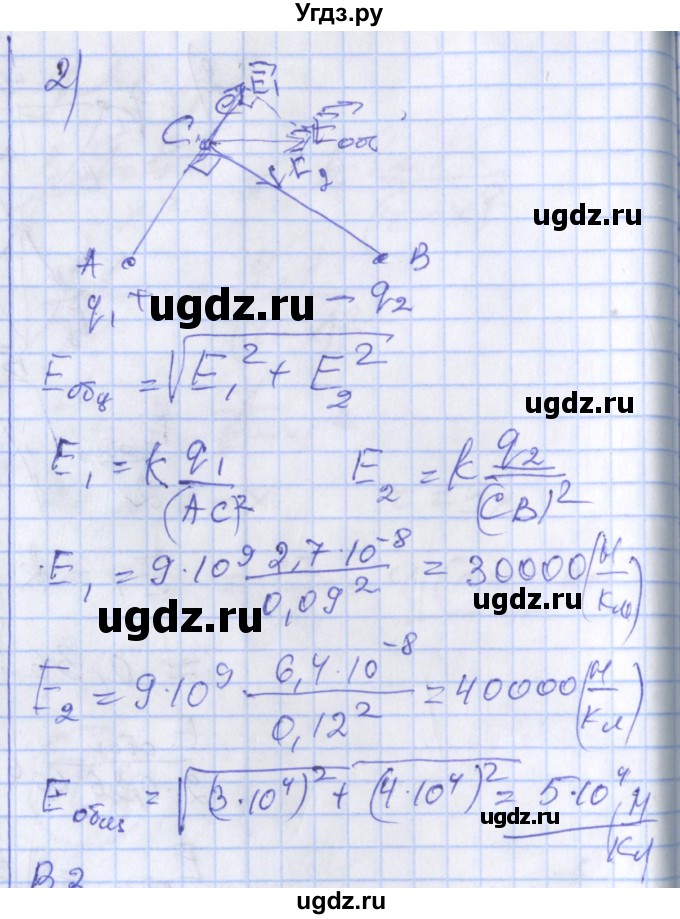 Угдз.ру
2)
E₁
C
Eоб
E₂
A
B
q₁ +
− q₂
ugdz.ru
ugdz.ru
Eобщ = √(E₁² + E₂²)
ugdz.ru
E₁ = k q₁/(AC)² E₂ = k q₂/(CB)²
E₁ = 9·10⁹ 2,7·10⁻⁸/0,09² = 30000 (Н/Кл)
ugdz.ru
ugdz.ru
E₂ = 9·10⁹ · 6,4·10⁻⁸/0,12² = 40000 (Н/Кл)
Eобщ = √((3·10⁴)² + (4·10⁴)²) = 5·10⁴ Н/Кл
ugdz.ru
В2
ugdz.ru